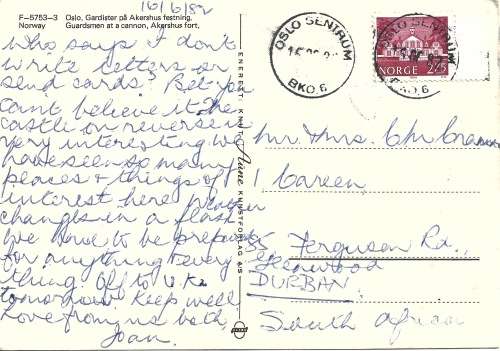 16/6/82
F-5753-3 Oslo, Gardister på Akershus festning.
Norway Guardsmen at a cannon, Akershus fort.
Who says I don't
write letters or
send cards? Bet you
cant believe it. The
castle on reverse is
very interesting. We
have seen so many
places & things of
interest here.
changes in a flash
We have to be prepared
for anything & every
thing. Off to U.K.
tomorrow. Keep well
Love from us both,
Joan.
ENERETT
KUNSTFORLAG
OSLO SENTRUM
BKO. 6
NORGE 225
OSLO SENTRUM
BKO. 6
Mr. & Mrs.
1 Careen
Ferguson Rd.,
Glenwood
DURBAN.
South Africa